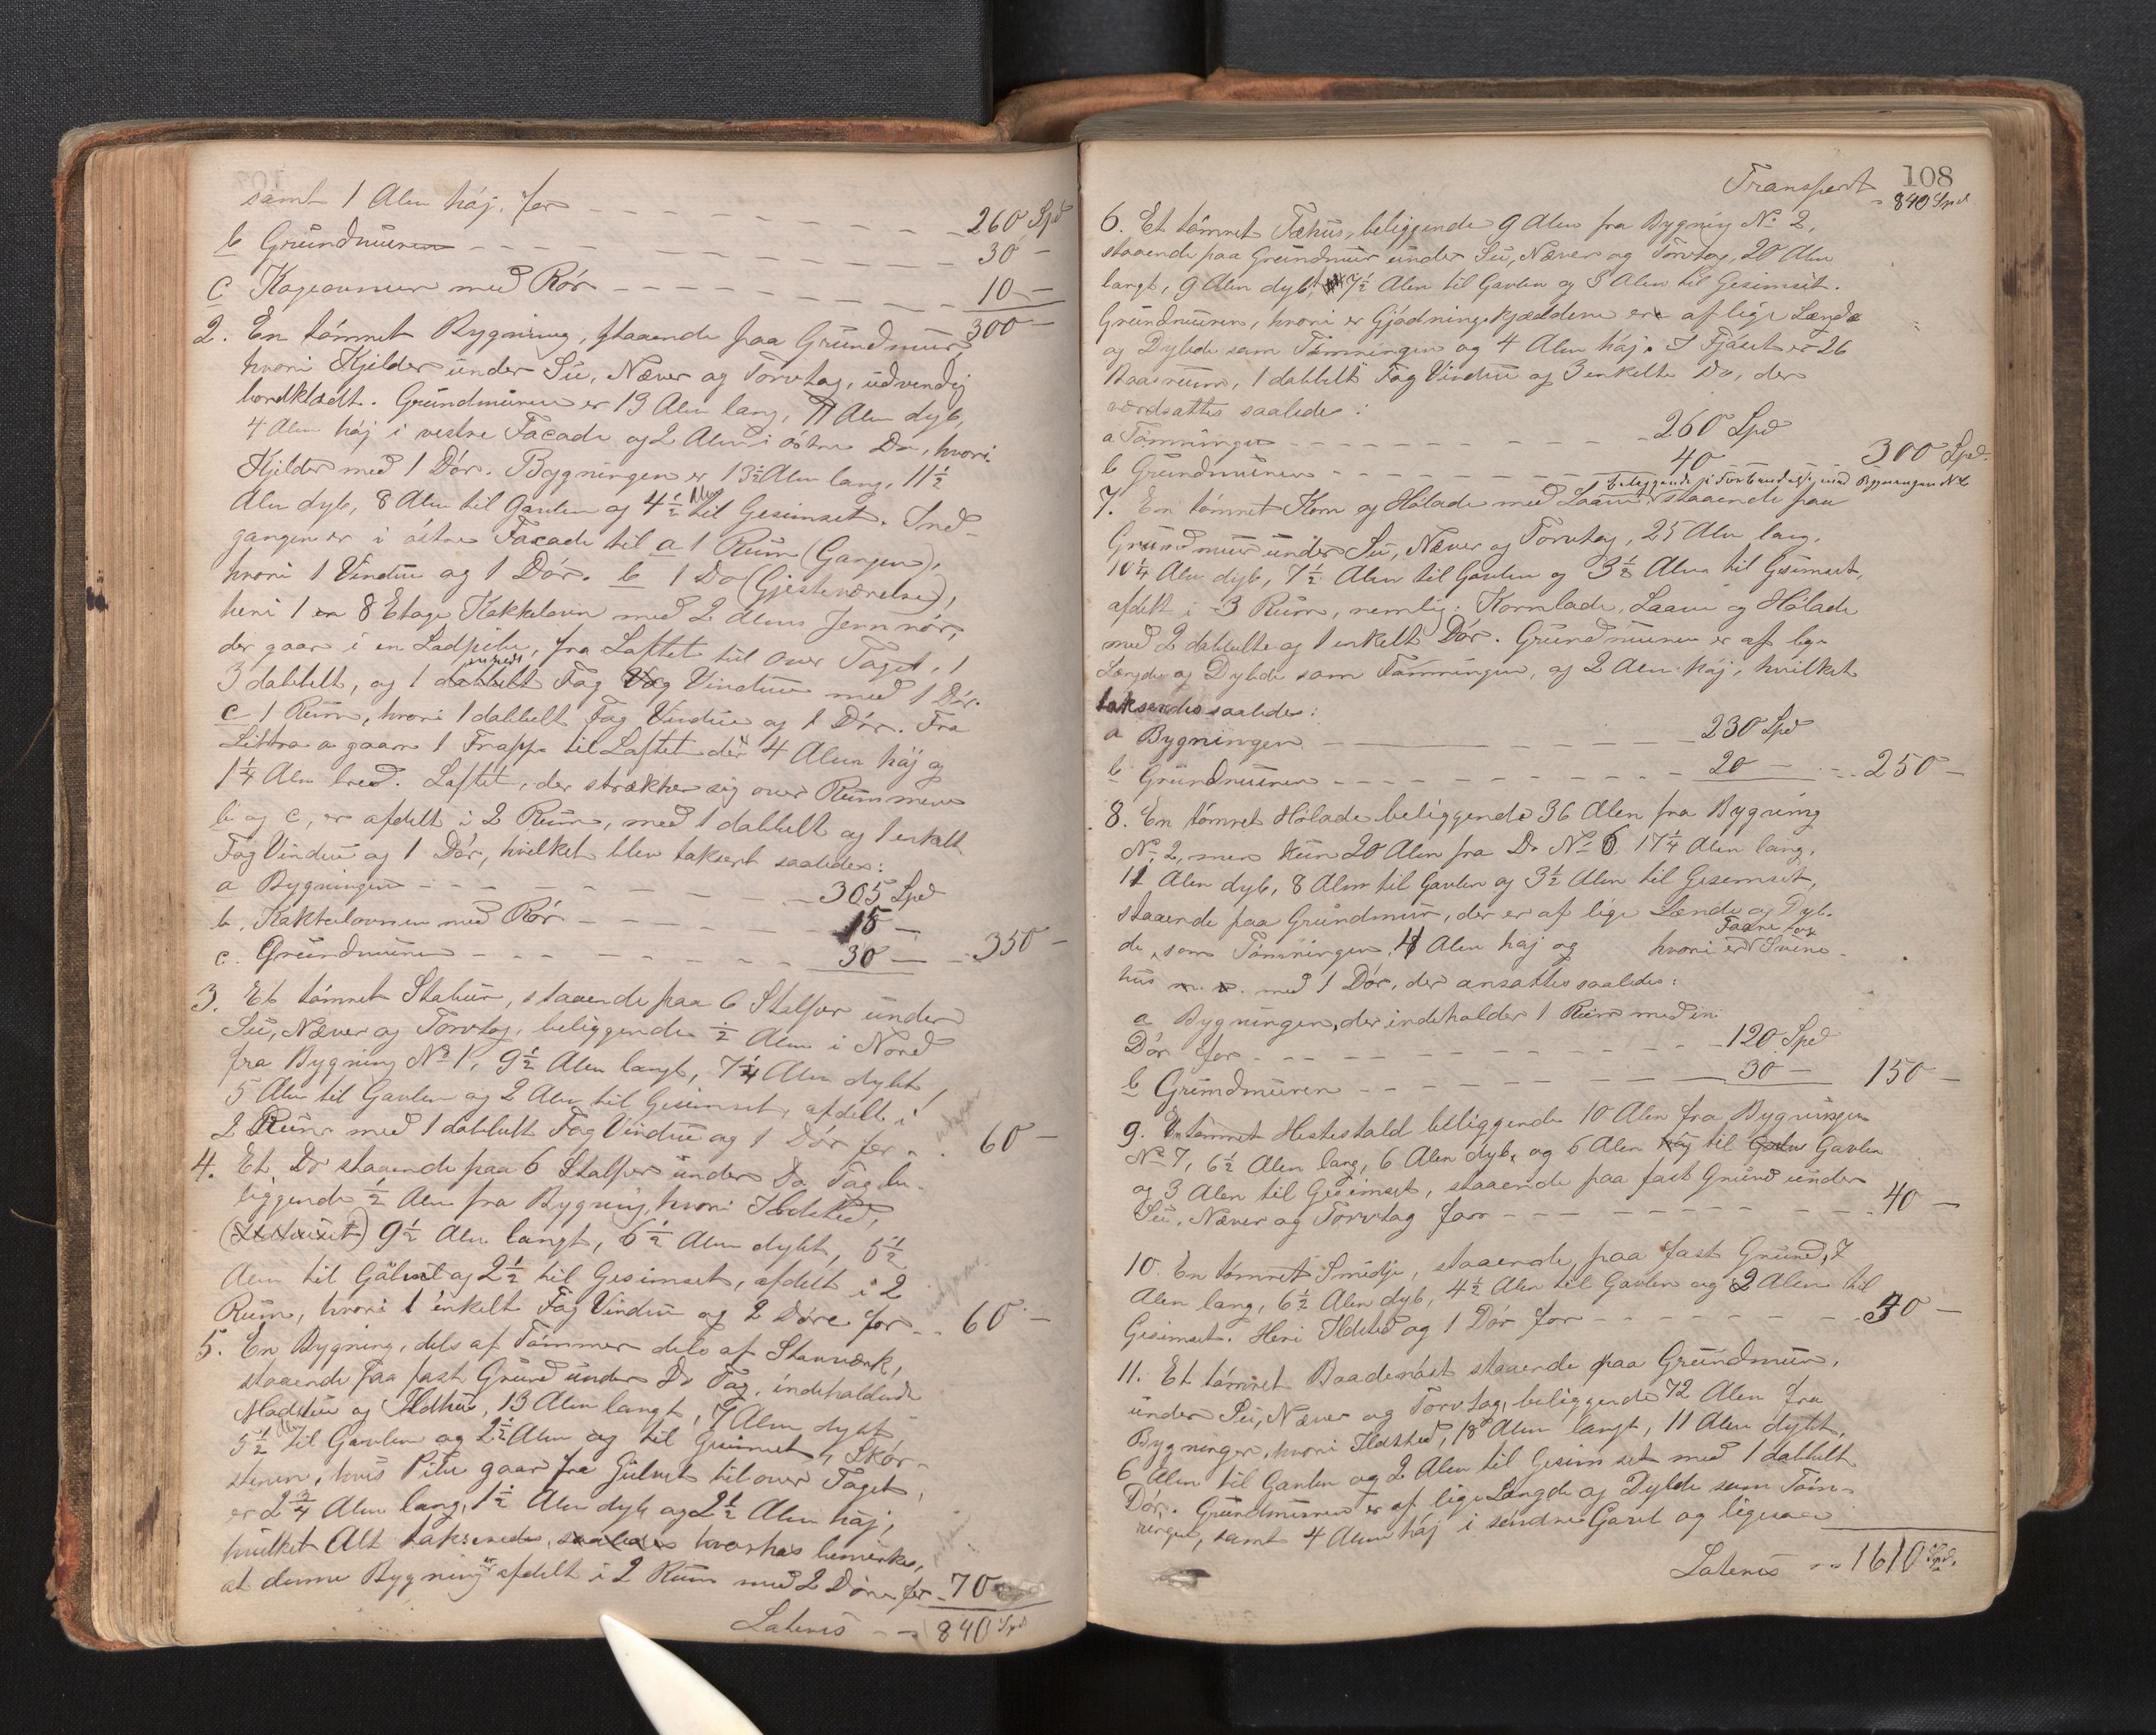 samt 1 Alen høj. for - - - 260 Spd
b Grundmuren - - - 30 -
c Kageovnen med Rør - - - 10 -
300 -
2. En tømret Bygning, staaende paa Grundmur,
hvori Kjelder under Su, Næver og Torvtag, udvendig
bordklædt. Grundmuren er 13 Alen lang, 11 Alen dyb,
4 Alen høj i vestre Facade og 2 Alen i østre Do, hvori
Kjelder med 1 Dør. Bygningen er 13½ Alen lang, 11½
Alen dyb, 8 Alen til Gavlen og 4½ Alen til Gesimset. Ind-
gangen er i østre Facade til a 1 Rum (Gangen),
hvori 1 Vindu og 1 Dør. b 1 Do (Gjesteværelse),
heri 1 en 8 Etage Kakkelovn med 2 Alens Jernrør,
der gaar i en Ladpibe, fra Loftet til over Taget, 1
3 dobbelt, og 1 dobbelt enkelt Fag Vindue med 1 Dør.
c 1 Rum, hvori 1 dobbelt Fag Vindue og 1 Dør. Fra
Littra a gaar 1 Trappe til Loftet der 4 Alen høj og
1¼ Alen bred. Loftet, der strækker sig over Rummene
b og c, er afdelt i 2 Rum, med 1 dobbelt og 1 enkelt
Fag Vindu og 1 Dør, hvilket blev taksert saaledes:
a Bygningen - - - 305 Spd
b. Kakkelovnen med Rør - - - 15 -
c. Grundmuren - - - 30 - - 350 -
3. Et tømret Stabur, staaende paa 6 Stolper under
Su, Næver og Torvtag, beliggende ½ Alen i Nord
fra Bygning No 1, 9½ Alen langt, 7¼ Alen dybt,
5 Alen til Gavlen og 2 Alen til Gesimset, afdelt i
2 Rum med 1 dobbelt Fag Vindu og 1 Dør for - - 60 -
4. Et Do staaende paa 6 Stolper under Do Tag be-
liggende ½ Alen fra Bygning, hvori Ildsted,
9½ Alen langt, 6½ Alen dybt, 5½
Alen til Gavlen og 2½ til Gesimset, afdelt i 2
Rum, hvori 1 enkelt Fag Vindu og 2 Døre for - - 60 -
5. En Bygning, dels af Tømmer dels af Stavværk,
staaende paa fast Grund under Do Tag, indeholdende
Madstue og Ildhus, 13 Alen langt, 7 Alen dybt,
5½ Alen til Gavlen og 2½ Alen og til Gesimset, Skor-
stenen, hvis Pibe gaar fra Gulvet til over Taget,
er 2¾ Alen lang, 1½ Alen dyb og 2½ Alen høj,
hvilket Alt takseredes saaledes hvorhos bemærkes,
at denne Bygning er afdelt i 2 Rum med 2 Døre for - 70
Lateris - - 840 Spd
108
Transport - 840 Spd
6. Et tømret Fæhus, beliggende 9 Alen fra Bygning No 2,
staaende paa Grundmur under Su, Næver og Torvtag, 20 Alen
langt, 9 Alen dybt, 7½ Alen til Gavlen og 5 Alen til Gesimset.
Grundmuren, hvori er Gjødningskjælderen er af lige Længde
og Dybde som Tømringen og 4 Alen høj. I Fjøset er 26
Baasrum, 1 dobbelt Fag Vindu og 3 enkelte Do, der
værdsattes saaledes:
a Tømringen - - - 260 Spd
b Grundmuren - - - 40 - - 300 Spd.
beliggende i Forbindelse med Bygningen No 6
7. En tømret Korn og Hølade med Laave staaende paa
Grundmur under Su, Næver og Torvtag, 25 Alen lang,
10¼ Alen dyb, 7½ Alen til Gavlen og 3½ Alen til Gesimset,
afdelt i 3 Rum, nemlig: Kornlade, Laave og Hølade
med 2 dobbelte og 1 enkelt Dør. Grundmuren er af lige
Længde og Dybde som Tømringen, og 2 Alen høj, hvilket
takseredes saaledes:
a Bygningen - - - 230 Spd
b Grundmuren - - - 20 - - 250 -
8. En tømret Hølade beliggende 36 Alen fra Bygning
No 2, men kun 20 Alen fra Do No 6. 17¼ Alen lang,
11 Alen dyb, 8 Alen til Gavlen og 3½ Alen til Gesimset,
staaende paa Grundmur, der er af lige Længde og Dyb-
de, som Tømringen, 4 Alen høj og hvori er Faare og Svine-
hus m. m. med 1 Dør, der ansattes saaledes:
a Bygningen, der indeholder 1 Rum med en
Dør for - - - 120 Spd
b Grundmuren - - - 30 - 150 -
9. En tømret Hestestald beliggende 10 Alen fra Bygningen
No 7, 6½ Alen lang, 6 Alen dyb, og 6 Alen høj til Gavlen
og 3 Alen til Gesimset, staaende paa fast Grund under
Su, Næver og Torvtag for - - - 40 -
10. En tømret Smidje, staaende paa fast Grund, 7
Alen lang, 6½ Alen dyb, 4½ Alen til Gavlen og 2 Alen til
Gesimset. Heri Ildsted og 1 Dør for - - - 30 -
11. Et tømret Baadenøst staaende paa Grundmur,
under Su, Næver og Torvtag, beliggende 72 Alen fra
Bygningen, hvori Ildsted, 18 Alen langt, 11 Alen dybt,
6 Alen til Gavlen og 2 Alen til Gesimset med 1 dobbelt
Dør. Grundmuren er af lige Længde og Dybde som Tøm-
ringen, samt 4 Alen høj i søndre Gavl og ligesaa
Lateris - - 1610 Spd.